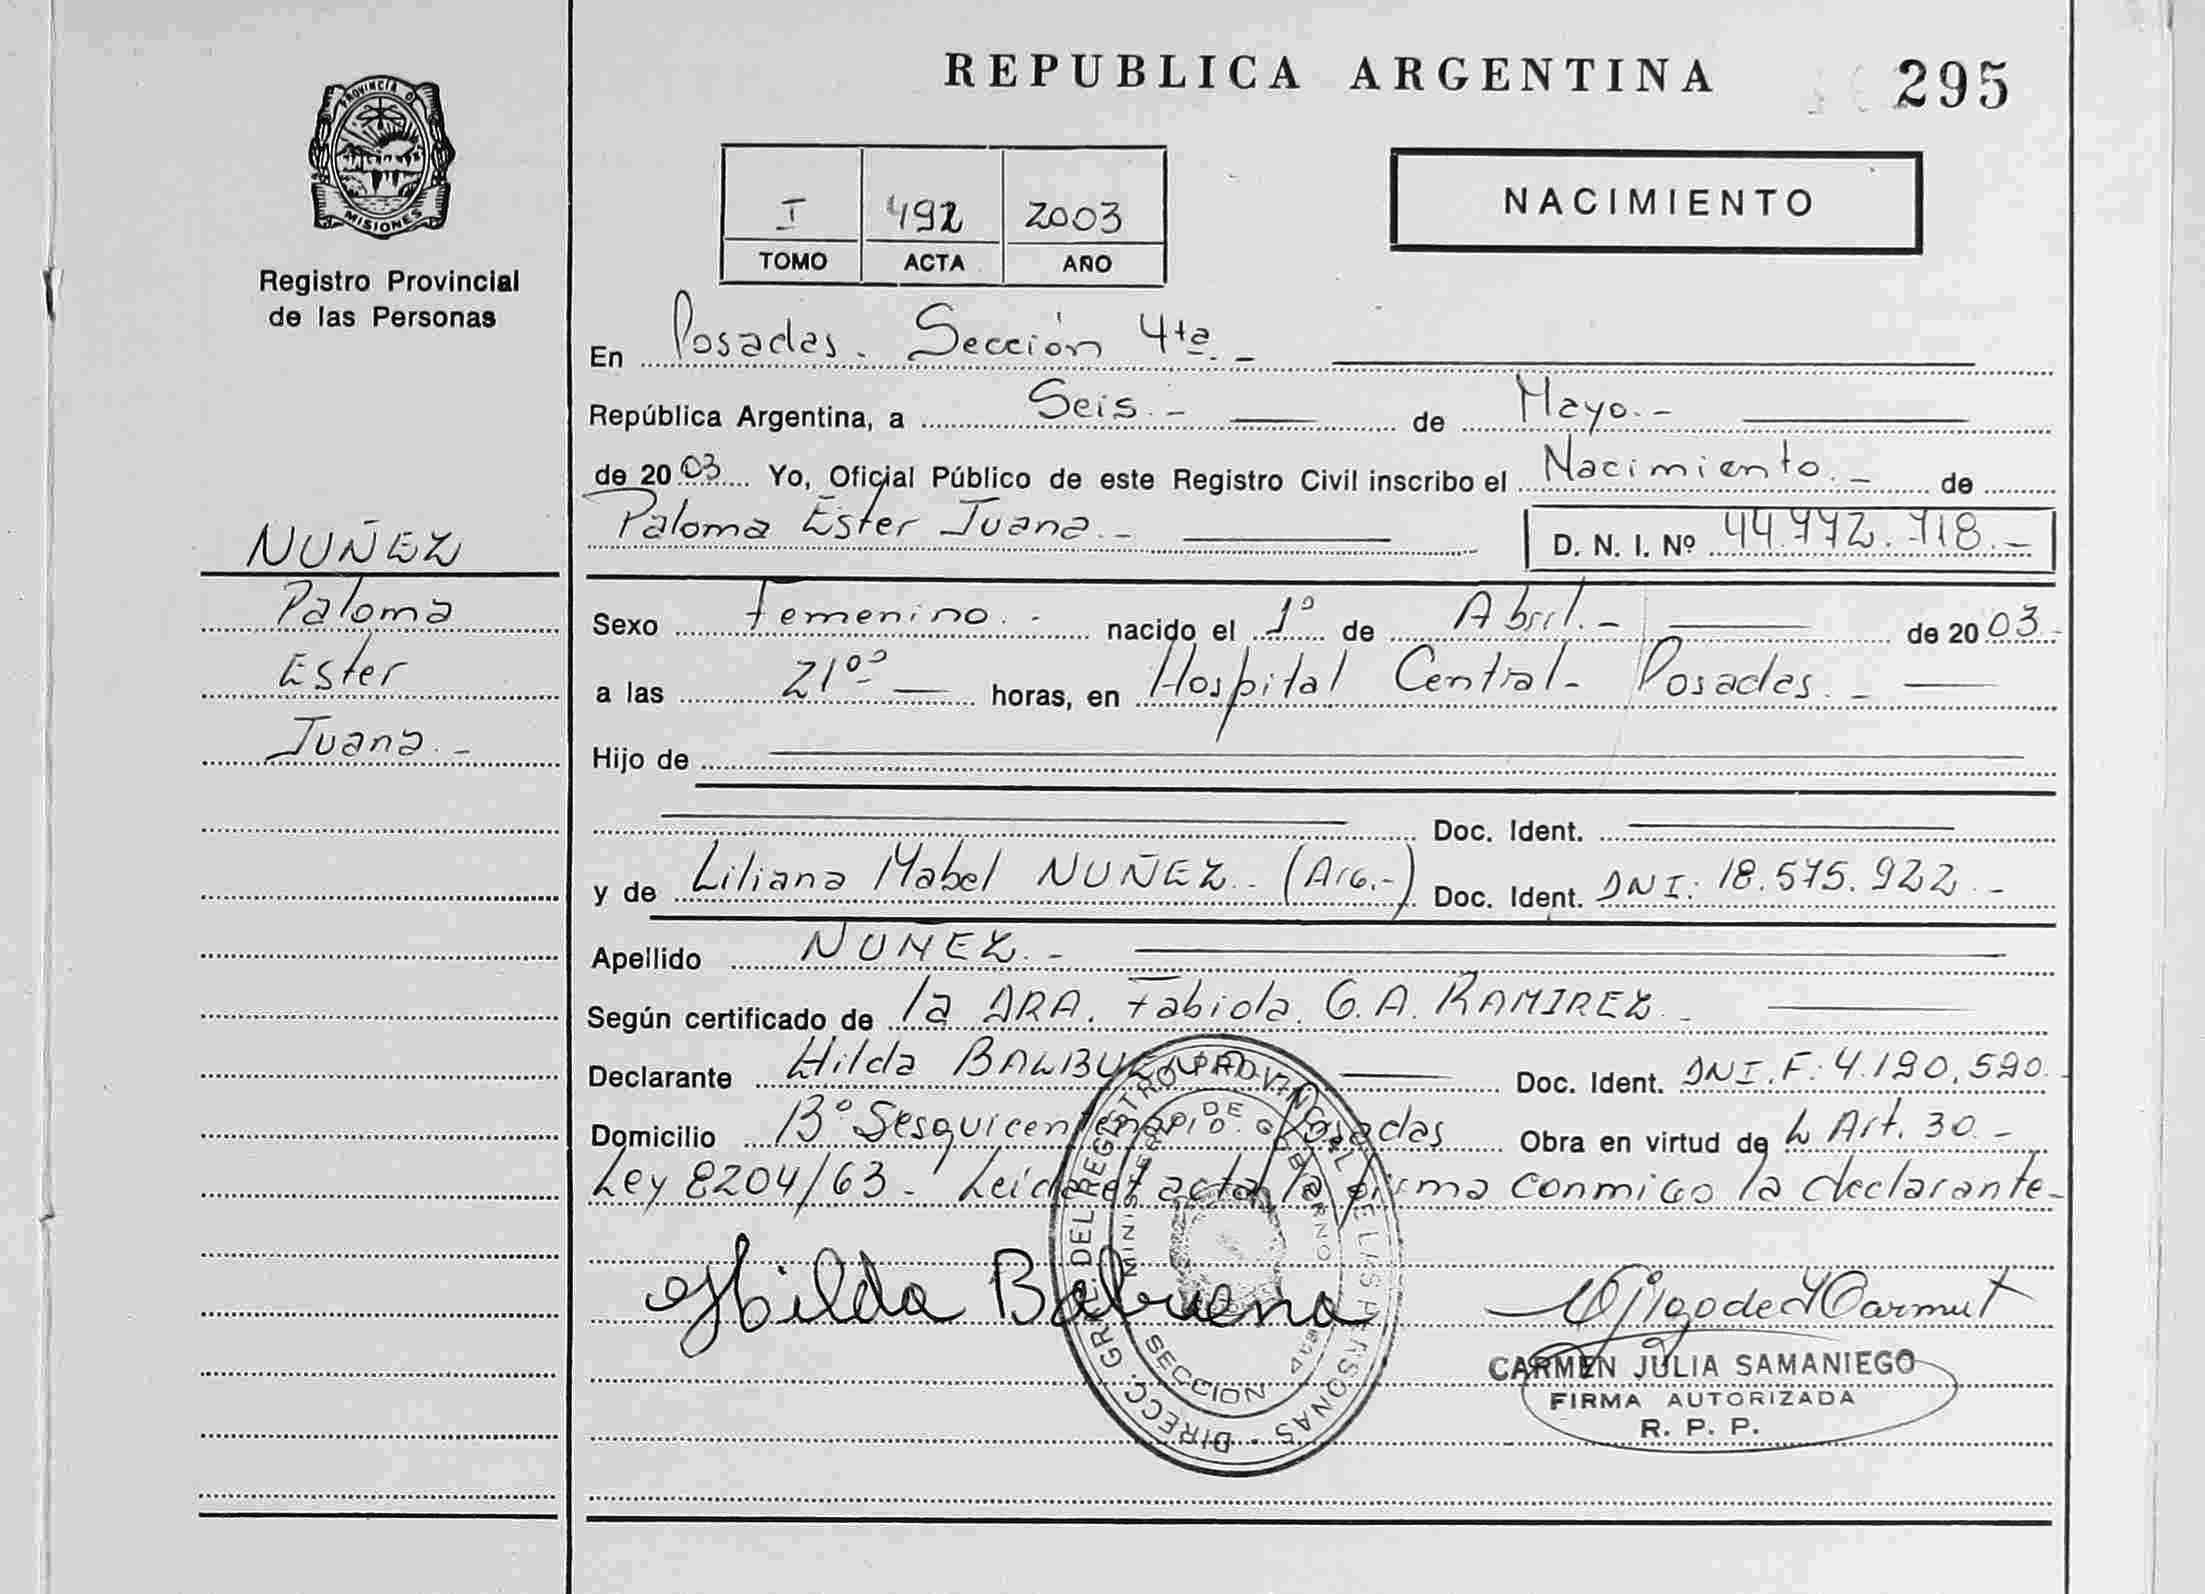 REPUBLICA ARGENTINA
295
PROVINCIA D MISIONES
Registro Provincial
de las Personas
I 492 2003
TOMO ACTA AÑO
NACIMIENTO
En Posadas. Sección 4ta. -
República Argentina, a Seis. - de Mayo. -
de 20 03 Yo, Oficial Público de este Registro Civil inscribo el Nacimiento. - de
Paloma Ester Juana. - D. N. I. Nº 44.772.718. -
NUÑEZ
Paloma
Ester
Juana. -
Sexo Femenino. - nacido el 1º de Abril. - de 20 03. -
a las 21ºº horas, en Hospital Central - Posadas. -
Hijo de
Doc. Ident.
y de Liliana Mabel NUÑEZ. (Arg.-) Doc. Ident. DNI: 18.575.922. -
Apellido NUÑEZ. -
Según certificado de la DRA. Fabiola. G. A. RAMIREZ. -
Declarante Hilda BALBUENA Doc. Ident. DNI. F: 4.190.590.
Domicilio Bº Sesquicentenario. Posadas Obra en virtud de L Art. 30. -
Ley 8204/63 - Leida el acta la firma conmigo la declarante. -
Hilda Balbuena
DIRECC. GRAL. DEL REGISTRO PROVINCIAL DE LAS PERSONAS
MINISTERIO DE GOBIERNO
SECCION 4
CARMEN JULIA SAMANIEGO
FIRMA AUTORIZADA
R. P. P.